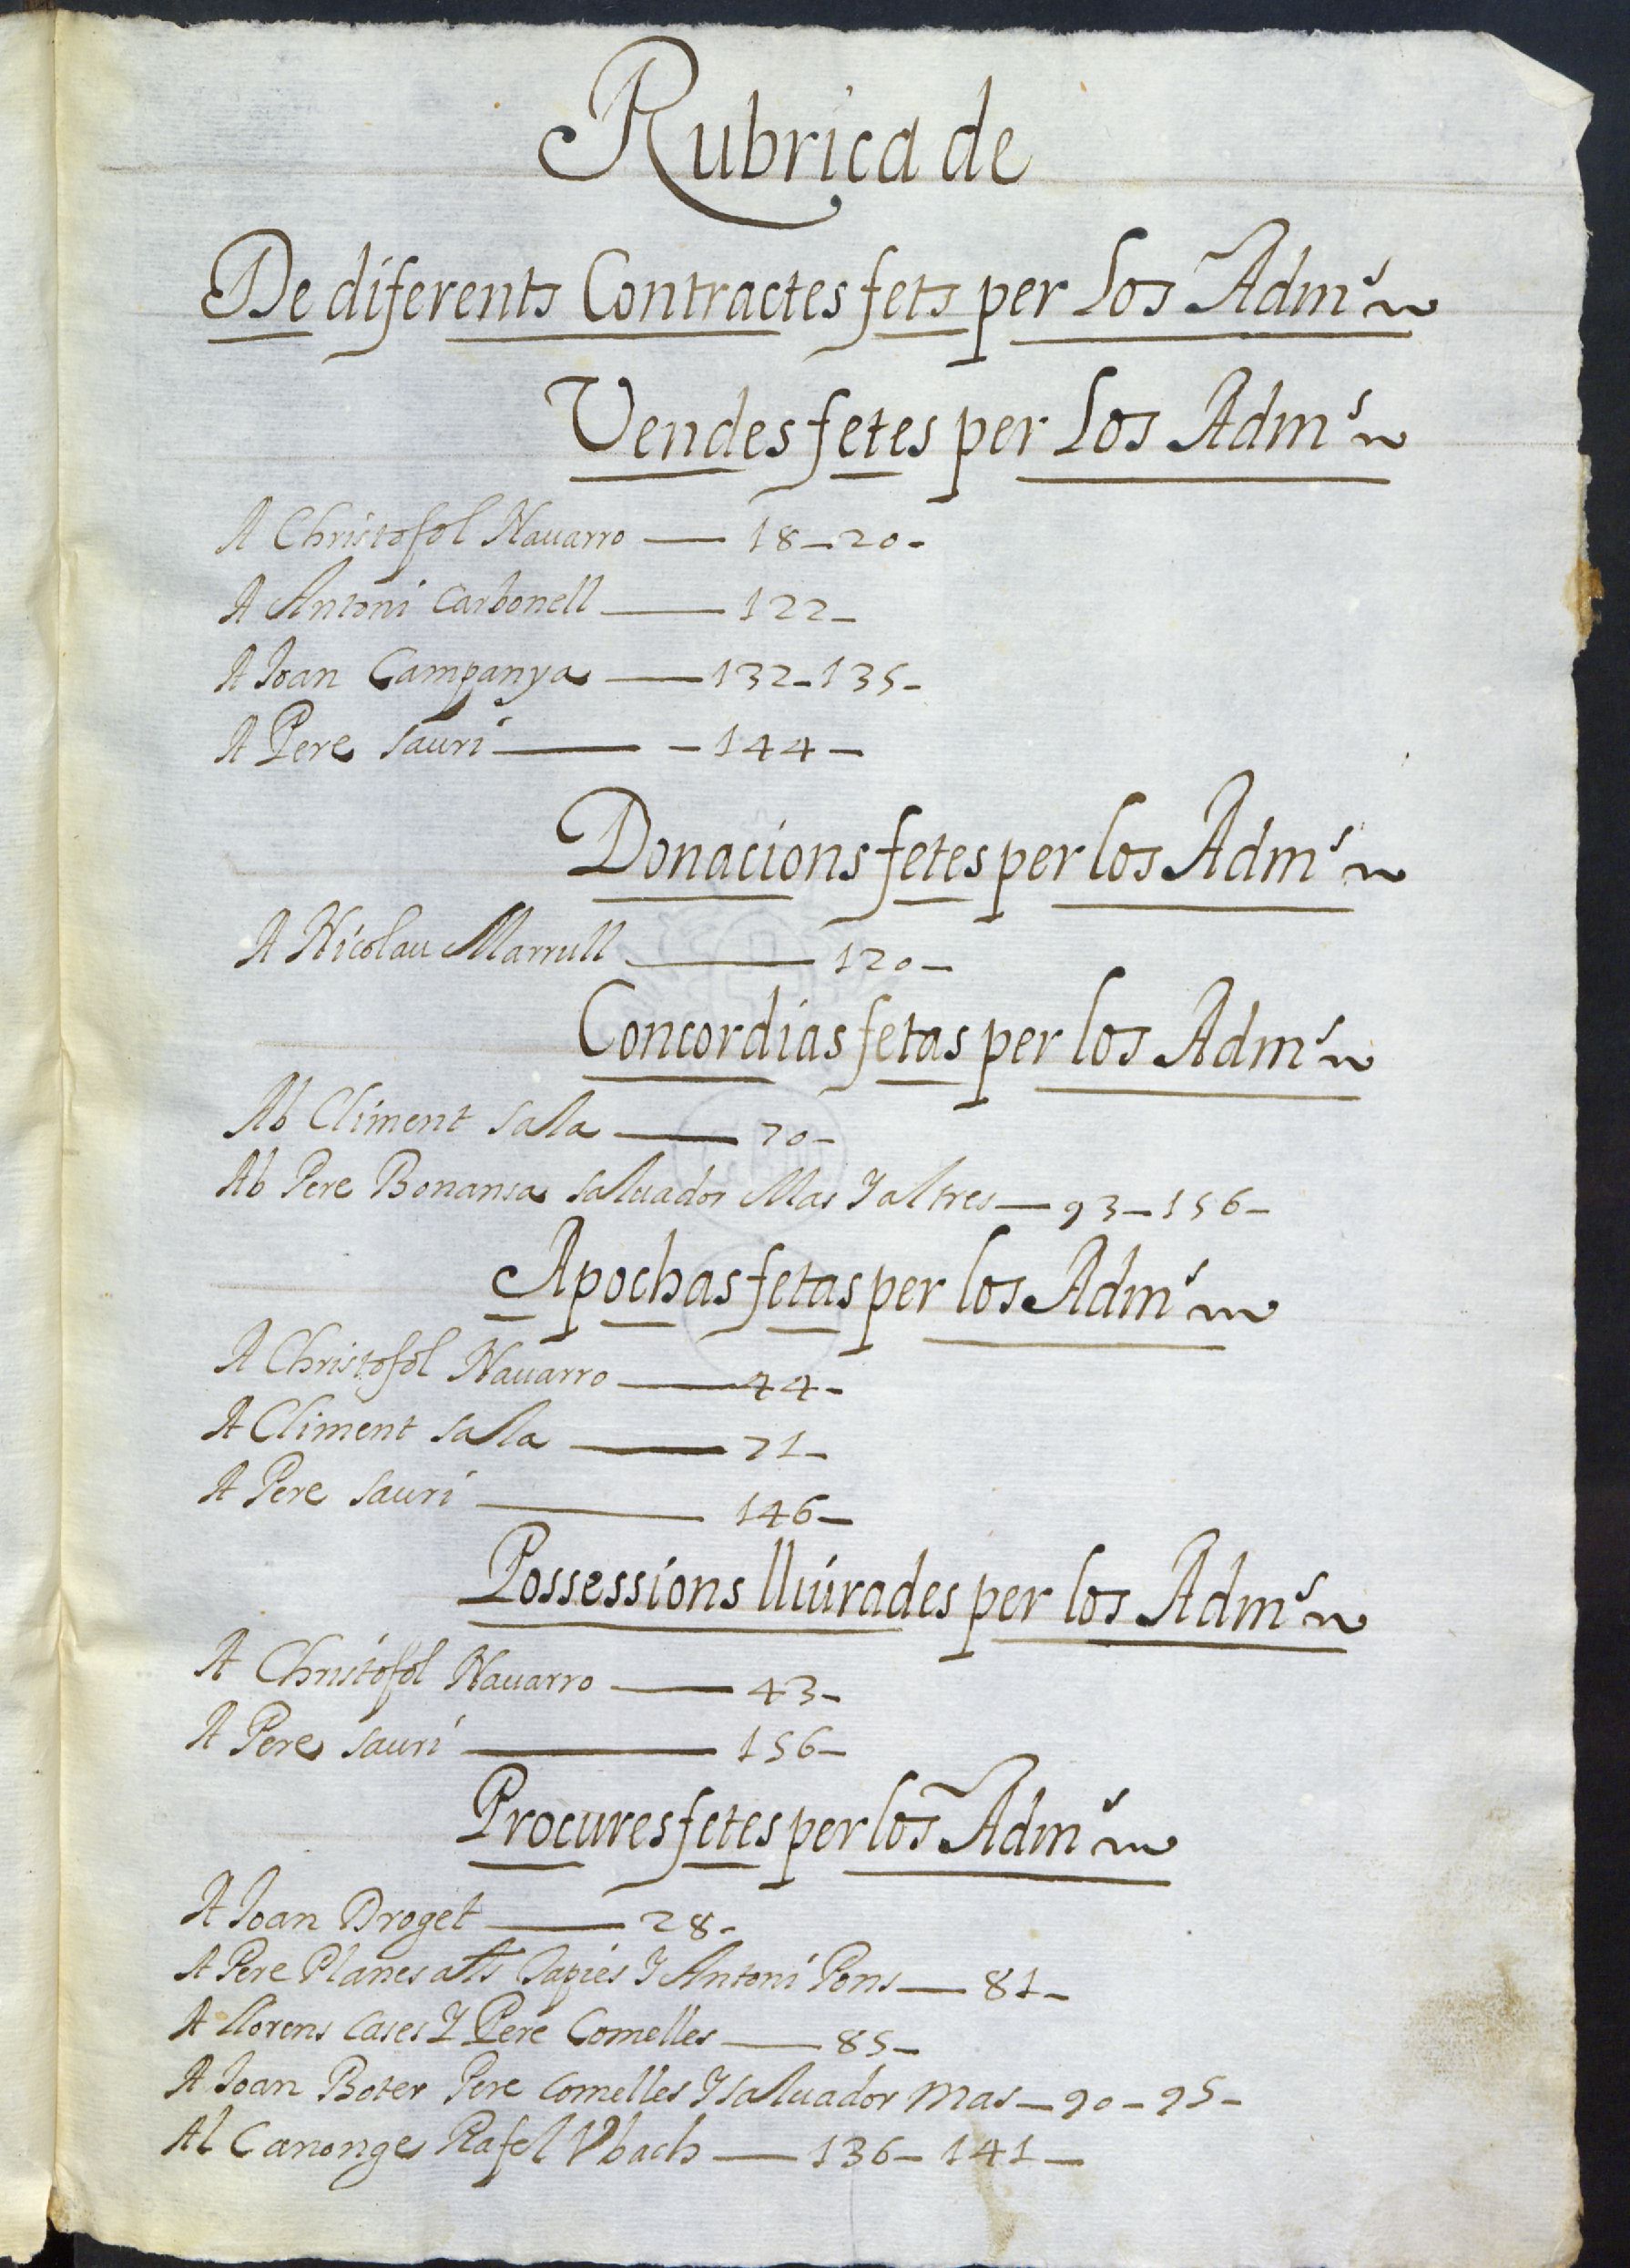 Rubrica de
De diferents Contractes fets per Los Adm.s
Vendes fetes per Los Adm.s
A Christofol Nauarro — 18 — 20 -
A Antoni Carbonell — 122 -
A Joan Campanya — 132 - 135 -
A Pere Sauri — 144 -
Donacions fetes per los Adm.s
A Nicolau Marrull — 120 -
Concordias fetas per los Adm.s
Ab Climent Sala — 70 -
Ab Pere Bonansa Saluador Mas Y altres — 93 - 156 -
Apochas fetas per los Adm.s
A Christofol Nauarro — 44 -
A Climent Sala — 71 -
A Pere Sauri — 146 -
Possessions lliurades per los Adm.s
A Christofol Nauarro — 43 -
A Pere Sauri — 156 -
Procures fetes per los Adm.s
A Joan Droget — 28 -
A Pere Planes als Sapies Y Antoni Pons — 81 -
A Llorens Cases Y Pere Comelles — 85 -
A Joan Boter Pere Comelles Y Saluador Mas — 90 - 95 -
Al Canonge Rafel Vbach — 136 - 141 -